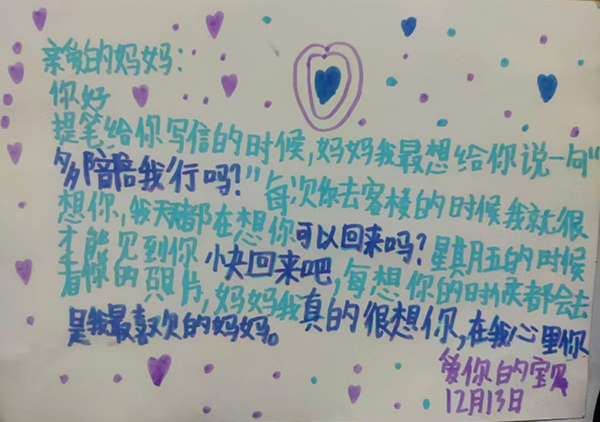 亲爱的妈妈：
你好
提笔给你写信的时候，妈妈我最想给你说一句“
多陪陪我行吗？”每次你去客栈的时候我就很
想你，我天天都在想你可以回来吗？星期五的时候
才能见到你小央回来吧，每想你的时候都会去
看你的照片，妈妈我真的很想你，在我心里你
是我最喜欢的妈妈。
爱你的宝贝
12月13日